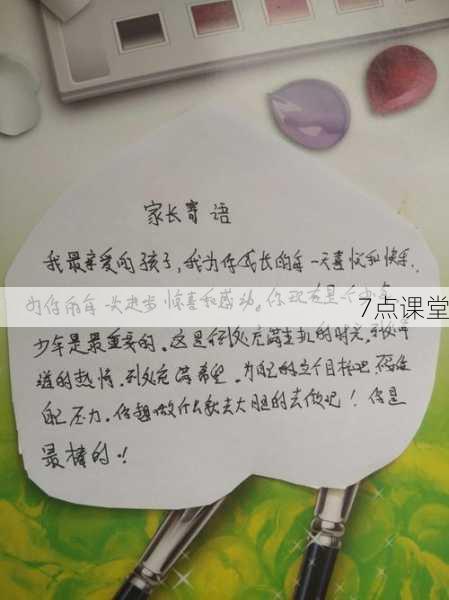 家长寄语
我最亲爱的孩子，我为你成长的每一天喜悦和快乐.
为你的每一次进步惊喜和感动。你现在是个少年
7点课堂
少年是最重要的。这是到处充满生机的时光,
道的热情。到处充满希望。为自己的定个目标吧
自己压力。你想做什么就去大胆的去做吧！你是
最棒的.！